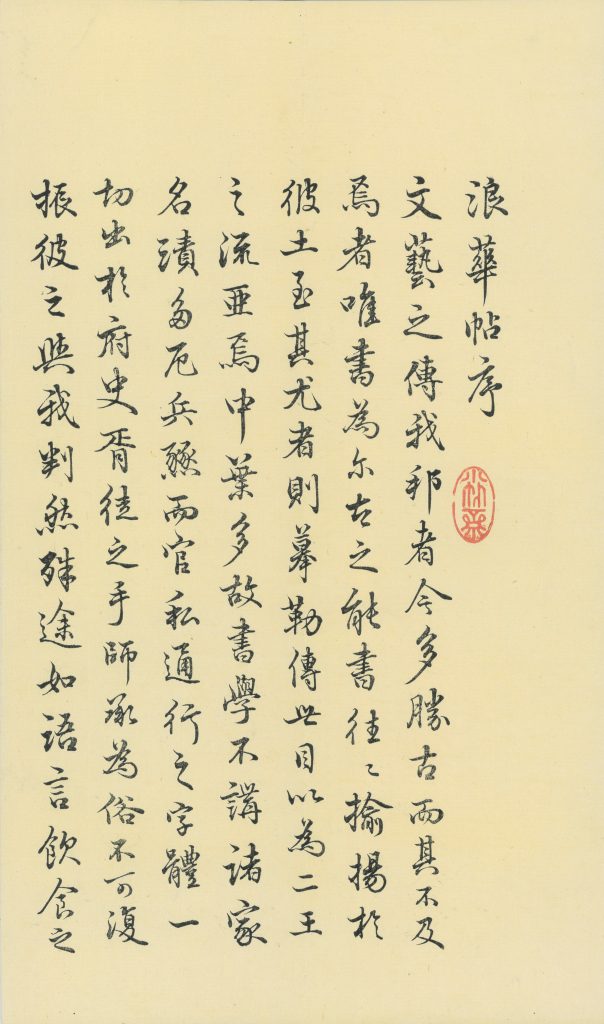 浪華帖序
文藝之傳我邦者今多勝古而其不及
焉者唯書為尓古之能書往〻揄揚於
彼土至其尤者則摹勒傳世目以為二王
之流亜焉中葉多故書學不講諸家
名蹟多厄兵燹而官私通行之字體一
切出於府史胥徒之手師承為俗不可復
振彼之與我判然殊途如語言飲食之